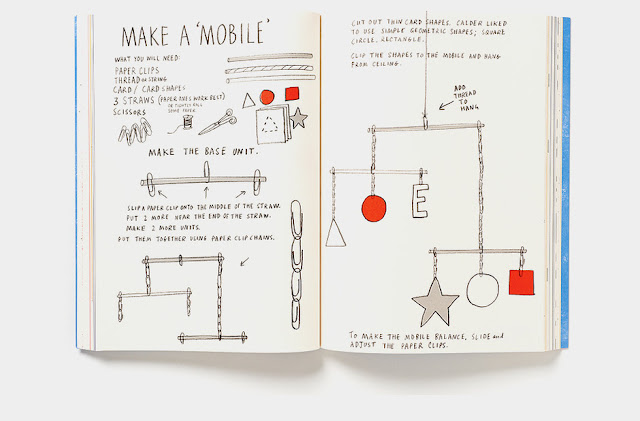 MAKE A 'MOBILE'
WHAT YOU WILL NEED:
PAPER CLIPS
THREAD OR STRING
CARD / CARD SHAPES
3 STRAWS (PAPER ONES WORK BEST)
OR TIGHTLY ROLL
SOME PAPER
SCISSORS
MAKE THE BASE UNIT.
SLIP A PAPER CLIP ONTO THE MIDDLE OF THE STRAW.
PUT 2 MORE NEAR THE END OF THE STRAW.
MAKE 2 MORE UNITS.
PUT THEM TOGETHER USING PAPER CLIP CHAINS.
CUT OUT THIN CARD SHAPES. CALDER LIKED
TO USE SIMPLE GEOMETRIC SHAPES; SQUARE
CIRCLE, RECTANGLE.
CLIP THE SHAPES TO THE MOBILE AND HANG
FROM CEILING.
ADD
THREAD
TO
HANG
E
TO MAKE THE MOBILE BALANCE, SLIDE and
ADJUST THE PAPER CLIPS.